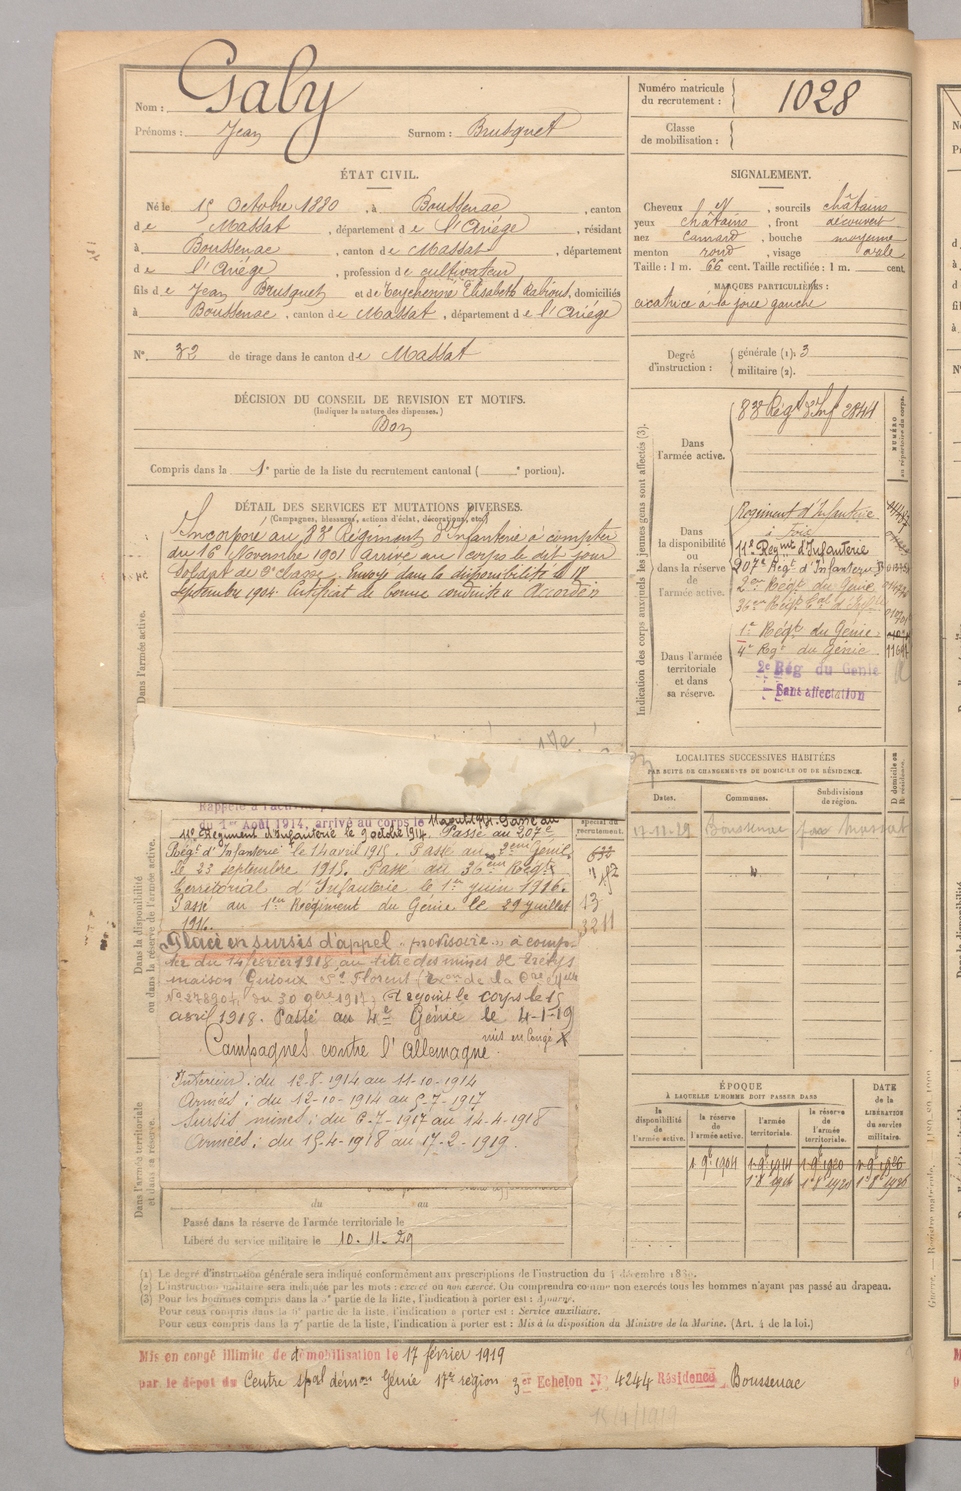 Nom : Galy
Prénoms : Jean Surnom : Brusquet
Numéro matricule du recrutement : 1028
Classe de mobilisation :
ÉTAT CIVIL.
Né le 15 Octobre 1880, à Boussenac, canton
de Massat, département de l'Ariège, résidant
à Boussenac, canton de Massat, département
de l'Ariège, profession de cultivateur
fils de Jean Brusquet et de Teychenné Elisabeth, domiciliés
à Boussenac, canton de Massat, département de l'Ariège
N° 32 de tirage dans le canton de Massat
SIGNALEMENT.
Cheveux , sourcils châtains
yeux châtains, front découvert
nez camard, bouche moyenne
menton rond, visage ovale
Taille : 1 m. 66 cent. Taille rectifiée : 1 m. cent.
MARQUES PARTICULIÈRES :
cicatrice à la joue gauche
Degré d'instruction : générale (1). 3
militaire (2).
DÉCISION DU CONSEIL DE REVISION ET MOTIFS.
(Indiquer la nature des dispenses.)
Bon
Compris dans la 1e partie de la liste du recrutement cantonal ( e portion).
DÉTAIL DES SERVICES ET MUTATIONS DIVERSES.
(Campagnes, blessures, actions d'éclat, décorations, etc.)
Incorporé au 83e Régiment d'Infanterie à compter
du 16 Novembre 1901 arrivé au corps le dit jour
Soldat de 2e classe. Envoyé dans la disponibilité le 18
Septembre 1904. Certificat de bonne conduite "Accordé"
Dans l'armée active.
Indication des corps auxquels les jeunes gens sont affectés (3).
NUMÉRO au répertoire du corps.
Dans l'armée active.
83e Régt d'Inf 2844
Dans la disponibilité ou dans la réserve de l'armée active.
Régiment d'Infanterie
à Foix
11e Regiment d'Infanterie
207e Régt d'Infanterie
2eme Régt du Génie
36eme Régt
1e Régt du Génie
4e Régt du Génie 11694
Dans l'armée territoriale et dans sa réserve.
2e Rég du Génie
Sans affectation
LOCALITÉS SUCCESSIVES HABITÉES
PAR SUITE DE CHANGEMENTS DE DOMICILE OU DE RÉSIDENCE.
Dates. Communes. Subdivisions de région. D domicile ou R résidence.
17-11-29 Boussenac Massat
Dans la disponibilité ou dans la réserve de l'armée active.
Rappelé à l'activité
du 1er Août 1914, arrivé au corps le 12 août 1914. Passé au
11e Régiment d'Infanterie le 9 octobre 1914. Passé au 207e
Régt d'Infanterie le 14 avril 1915. Passé au 2eme Génie
le 23 septembre 1915. Passé au 36eme Régt
territorial d'Infanterie le 1er juin 1916.
Passé au 1er Régiment du Génie le 29 juillet
1916.
spécial du recrutement.
632
182
13
3211
Placé en sursis d'appel "provisoire" à comp-
ter du 14 février 1918 au titre des mines de
maison St Florent
N° 278904, du 30 9bre 1917. A rejoint le corps le 15
avril 1918. Passé au 4e Génie le 4-1-19
mis en congé X
Campagnes contre l'Allemagne
Intérieur : du 12-8-1914 au 11-10-1914
Armées : du 12-10-1914 au 5-7-1917
Sursis mines : du 6-7-1917 au 14-4-1918
Armées : du 15-4-1918 au 17-2-1919.
Dans l'armée territoriale et dans sa réserve.
du au
Passé dans la réserve de l'armée territoriale le
Libéré du service militaire le 10.11.29
ÉPOQUE
À LAQUELLE L'HOMME DOIT PASSER DANS
la disponibilité de l'armée active. la réserve de l'armée active. l'armée territoriale. la réserve de l'armée territoriale. DATE de la LIBÉRATION du service militaire.
1 9bre 1904 1 9bre 1914 1 9bre 1920 1 9bre 1926
(1) Le degré d'instruction générale sera indiqué conformément aux prescriptions de l'instruction du 4 décembre 1889.
(2) L'instruction militaire sera indiquée par les mots : exercé ou non exercé. On comprendra comme non exercés tous les hommes n'ayant pas passé au drapeau.
(3) Pour les hommes compris dans la partie de la liste, l'indication à porter est : Ajourné.
Pour ceux compris dans la 6e partie de la liste, l'indication à porter est : Service auxiliaire.
Pour ceux compris dans la 7e partie de la liste, l'indication à porter est : Mis à la disposition du Ministre de la Marine. (Art. 4 de la loi.)
Mis en congé illimité de démobilisation le 17 février 1919
par le dépôt du Centre spal démon Génie 17e région 3er Echelon N° 4244 Résidence Boussenac